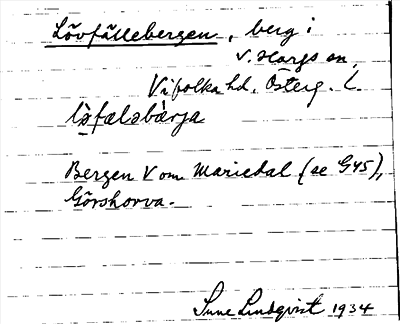 Lövfällebergen, berg i
V. Hargs sn,
Vifolka hd. Österg. L.
lòfæləbærja
Bergen V om Mariedal (se G45),
Görshorva.
Sune Lindqvist 1934